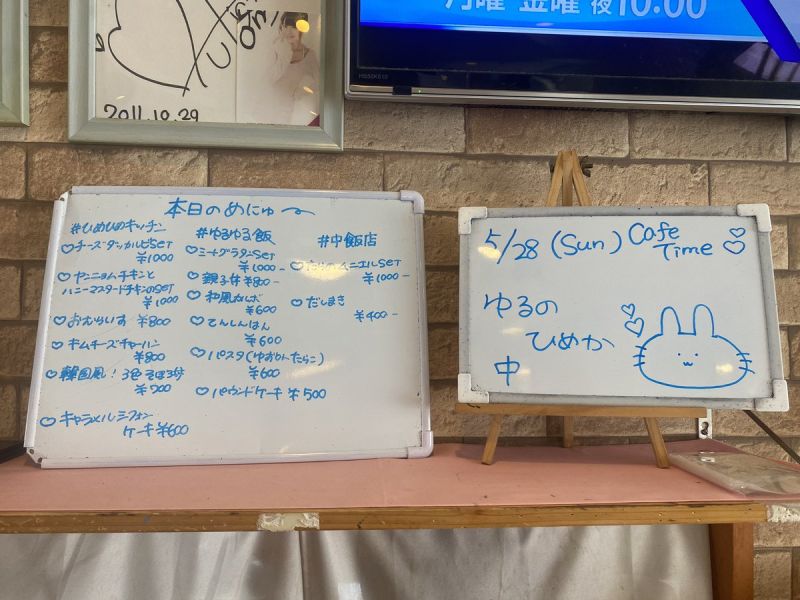 2011.10.29
月曜 金曜 夜10:00
本日のめにゅ〜
#ひめひめキッチン
♡チーズダッカルビSET
¥1000
♡ヤンニョムチキンと
ハニーマスタードチキンのSET
¥1000
♡おむらいす ¥800
♡キムチーズチャーハン
¥800
♡韓国風!3色そぼろ丼
¥700
♡キャラメルシフォン
ケーキ ¥600
#ゆるゆる飯
♡ミートグラタンSET
¥1000-
♡親子丼 ¥800-
♡和風カルボ
¥600
♡てんしんはん
¥600
♡パスタ(ゆずorたらこ)
¥600
♡パウンドケーキ ¥500
#中飯店
ムニエルSET
¥1000-
♡だしまき
¥400-
5/28 (Sun) Cafe Time ♡♡
ゆるの
ひめか
中